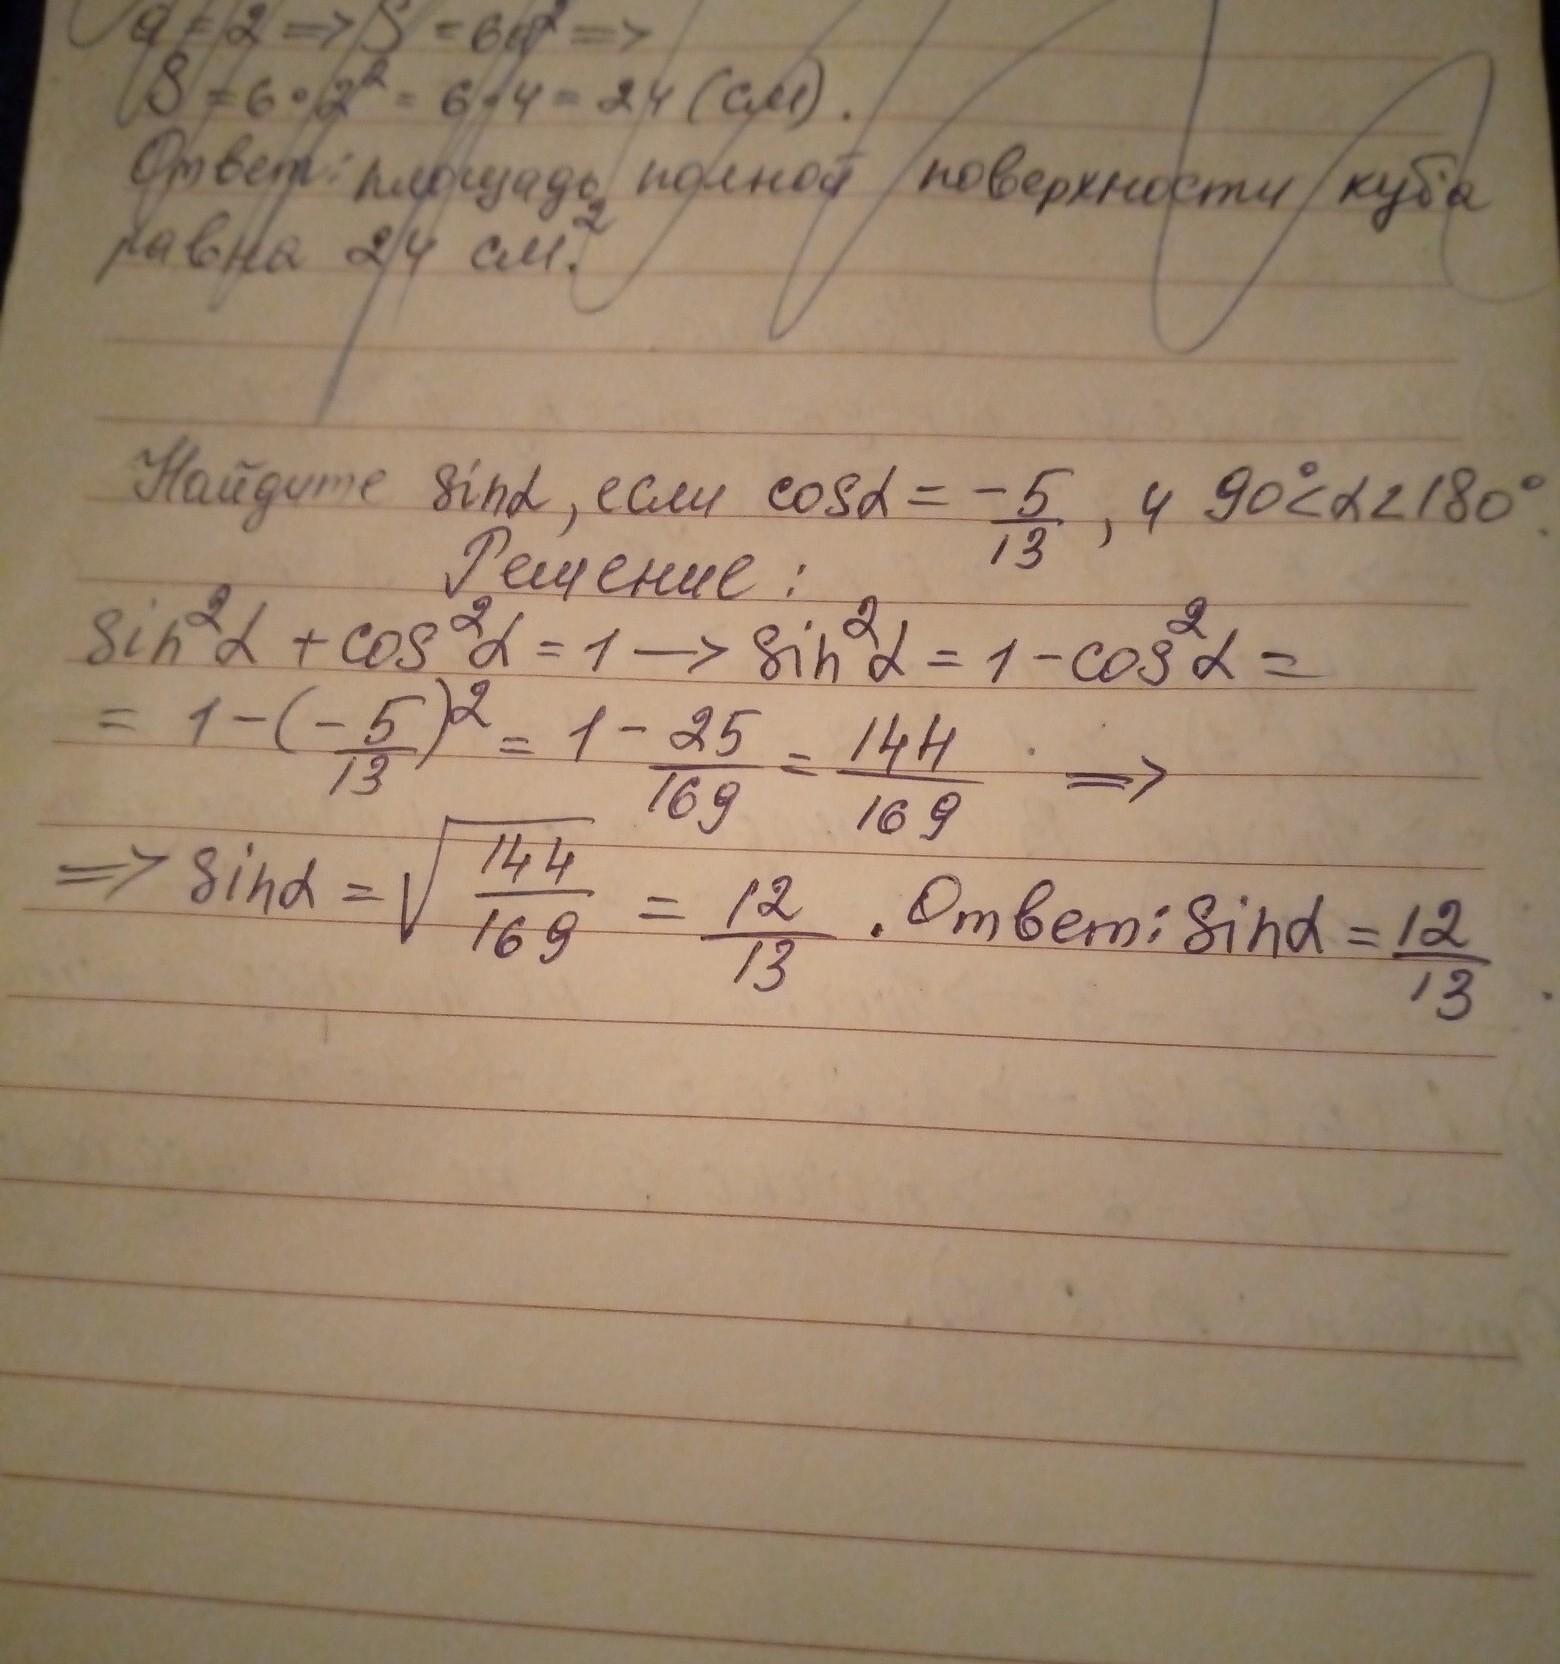 a = 2 => S = 6a² =>
S = 6 · 2² = 6 · 4 = 24 (см).
Ответ: площадь полной поверхности куба
равна 24 см.²
Найдите sinα, если cosα = -5/13, и 90°<α<180°.
Решение:
sin²α + cos²α = 1 —> sin²α = 1 - cos²α =
= 1 - (-5/13)² = 1 - 25/169 = 144/169 =>
=> sinα = √144/169 = 12/13. Ответ: sinα = 12/13.